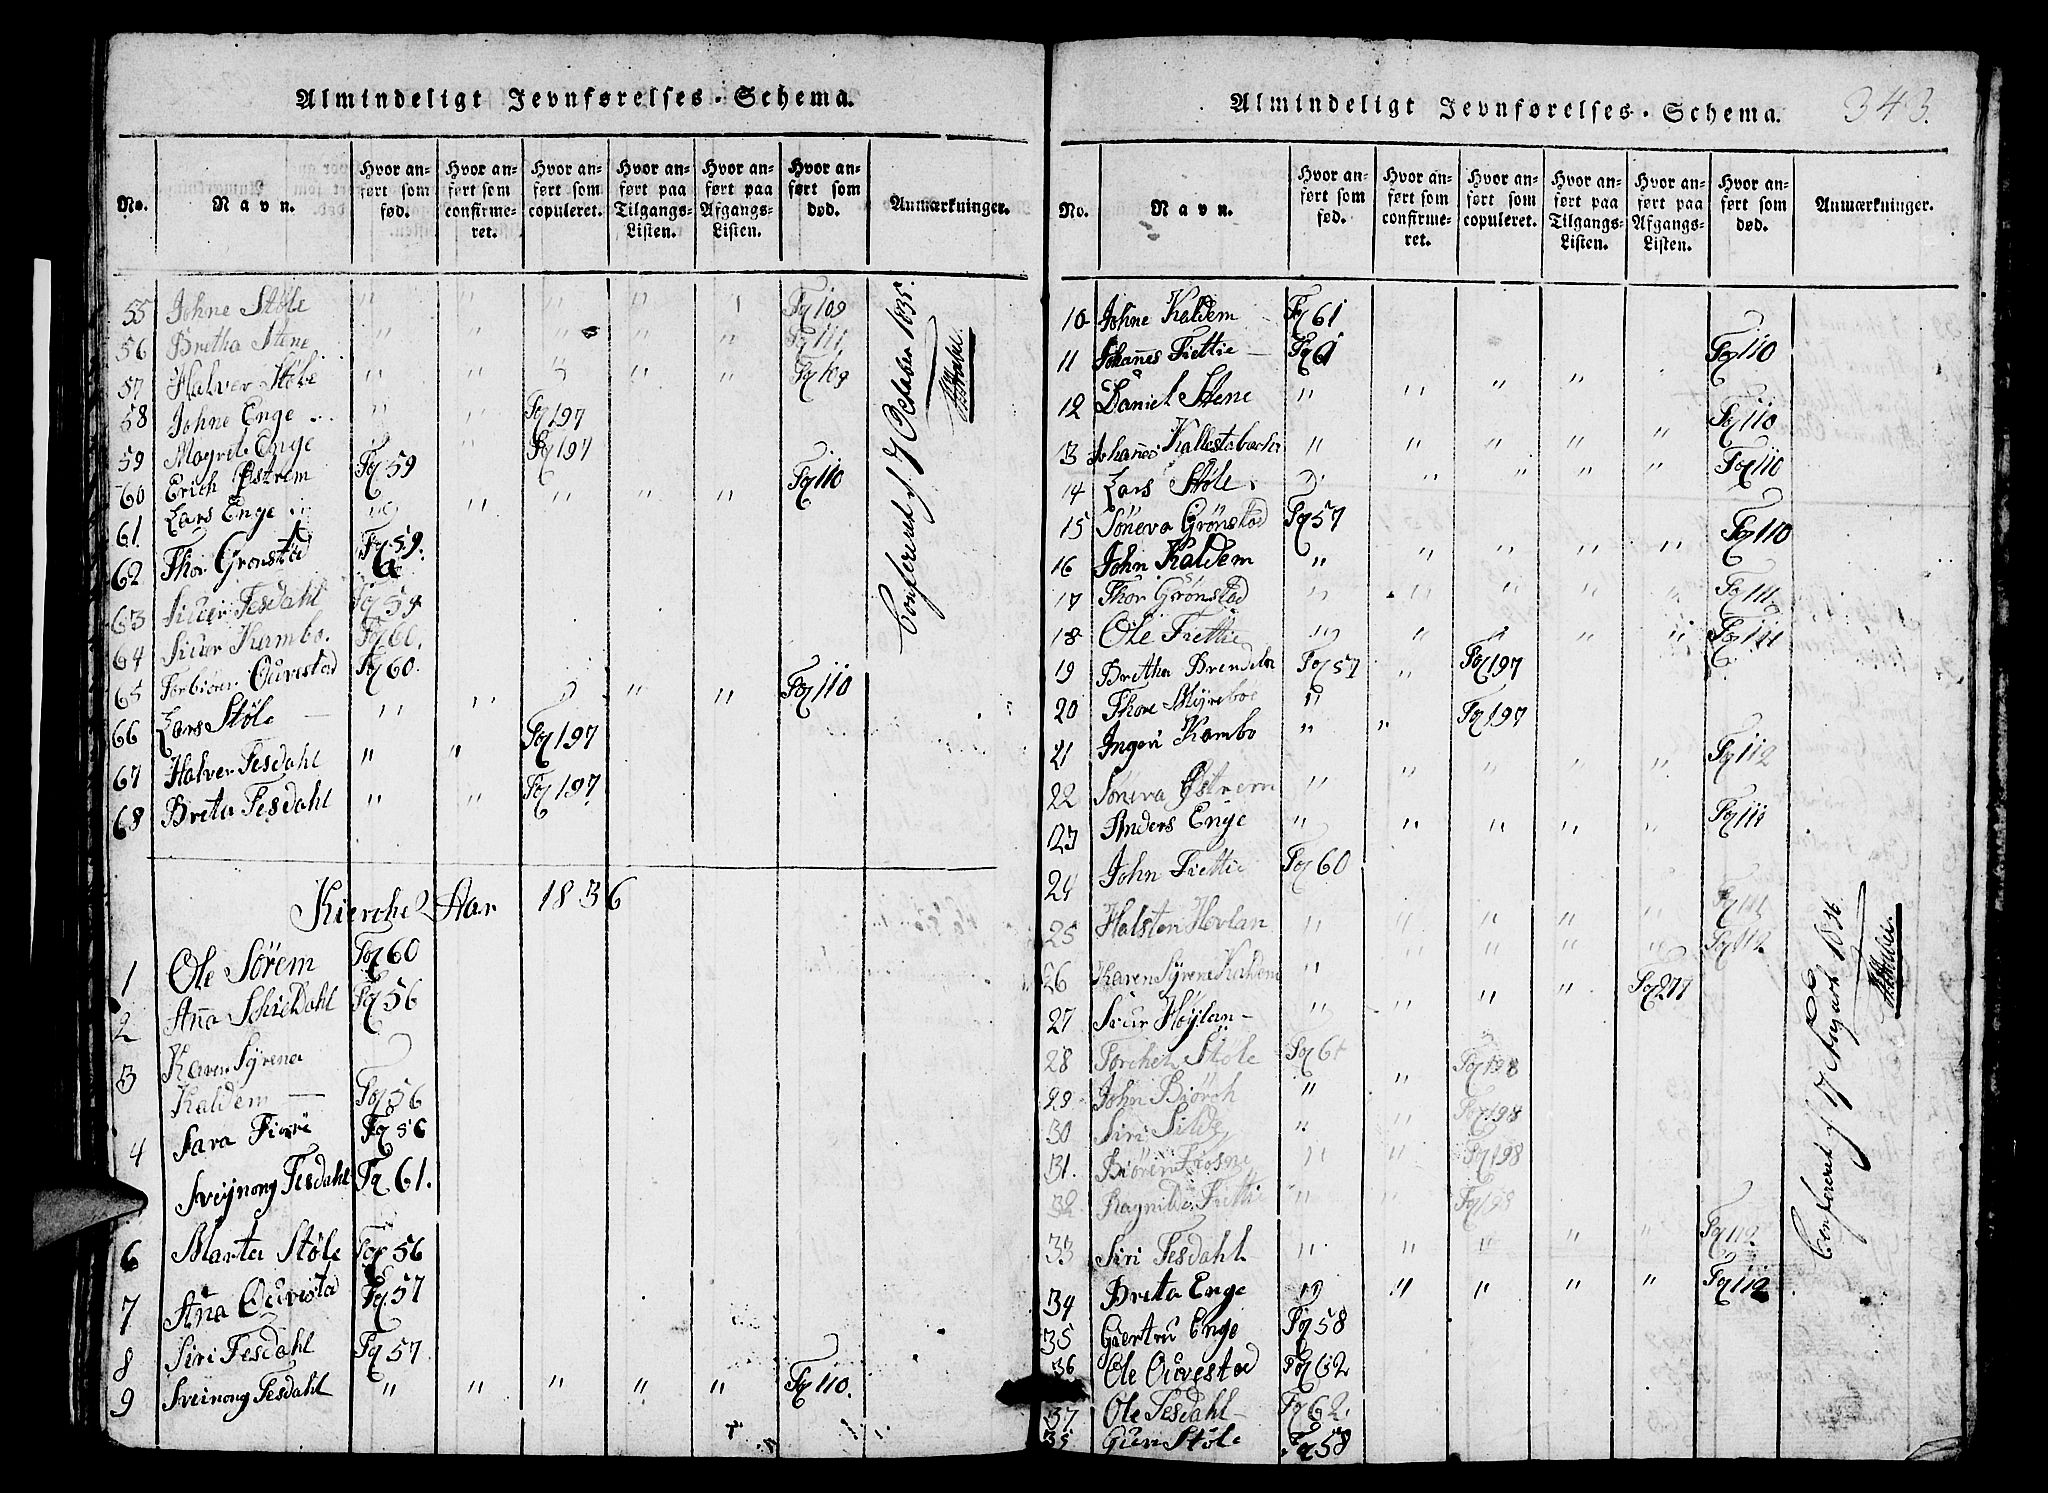 Almindeligt Jevnførelses-Schema.
No. Navn. Hvor anført som fød. Hvor anført som confirmeret. Hvor anført som copuleret. Hvor anført paa Tilgangs-Listen. Hvor anført paa Afgangs-Listen. Hvor anført som død. Anmærkninger.
55 Johne Støle " " " " " Fq 109
56 Bretha Stene " " " " " Fq 111
57 Halver Støle " " " " " Fq 109
58 Johne Enge " " Fq 197
59 Magrete Enge " Fq 197
60 Erich Østrem Fq 59
61. Lars Enge " " " " " Fq 110
62 Thor Gronstad Fq 59.
63 Siuer Tesdahl Fq 59
64 Siuer Kambo. Fq 60.
65 Torbiører Ouvestad Fq 60.
66 Lars Støle " " " " " Fq 110
67 Halver Tesdahl " " Fq 197
68 Breta Tesdahl " " Fq 197
Confereret d 17 October 1835.
Kierche Aar 1836
1 Ole Sørem Fq 60
2 Aña Schieldahl Fq 56
3 Karen Syrena
Kaldem Fq 56
4 Sara Fq 56
Sveynong Tesdahl Fq 61.
6 Marta Støle Fq 56
7 Aña Ouvestad Fq 57
8 Siri Tesdahl Fq 57
9 Sveinong Tesdahl " " " " " Fq 110.
Almindeligt Jevnførelses-Schema. 343.
No. Navn. Hvor anført som fød. Hvor anført som confirmeret. Hvor anført som copuleret. Hvor anført paa Tilgangs-Listen. Hvor anført paa Afgangs-Listen. Hvor anført som død. Anmærkninger.
10 Johne Kaldem Fq 61
11 Johañes Tiettie Fq 61
12 Daniel Stene " " " " Fq 110
13 Johañes Kallestabacken " " " " " Fq 110
14 Lars Støle " " " " " Fq 110
15 Søneva Grønstad Fq 57
16 John Kaldem " " " " " Fq 110
17 Thor Grønstad " " " " " Fq 111
18 Ole Tiettie " " " " " Fq 111
19 Bretha Brendeboe Fq 57 " Fq 197
20 Thore Myreboe " Fq 197
21 Ingeri Kambo " "
22 Søneva Østrem " " " " " Fq 112
23 Anders Enge " " " " " Fq 111
24 John Tiettie Fq 60
25 Halsten Hovlan " " " " " Fq 111
26 Karen Syrene Kaldem " " " " " Fq 112
27 Siuer Høylan " " " " Fq 277
28 Torchel Støle Fq 61
29 John Biørch " " Fq 198
30 Siri Silde " " Fq 198
31. Biøren Fiosne " " Fq 198
32 Ragnilde Tiettie " Fq 198
33 Siri Tesdahl " " " " " Fq 112
34 Breta Enge " " " " " Fq 112
35 Giertru Enge Fq 58
36 Ole Ouvestad Fq 62
37 Ole Tesdahl Fq 62.
Støle Fq 58
Confereret d 17 1836.